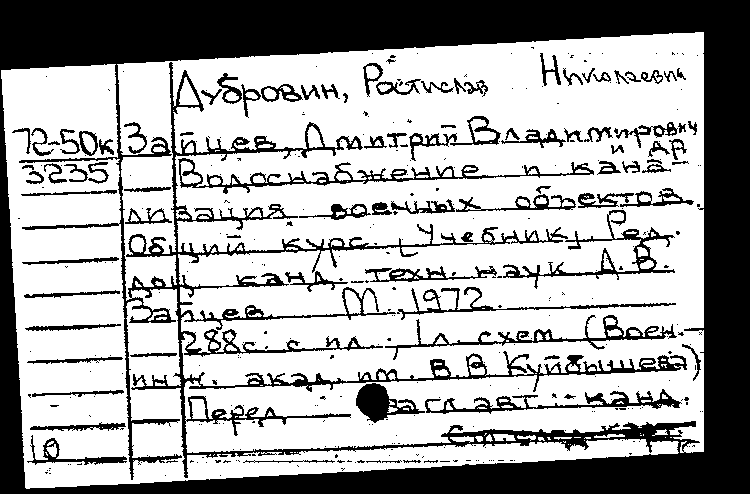 Дубровин, Ростислав Николаевич
72-50к Зайцев, Дмитрий Владимирович
и др
3235 Водоснабжение и кана-
лизация военных объектов.
Общий курс. [Учебник]. Ред.
доц. канд. техн. наук Д.В.
Зайцев. М., 1972.
288с. с ил.; 1л. схем. (Воен.-
инж. акад. им. В.В Куйбышева)
Перед загл. авт.:- канд.
См. след. карт.
10